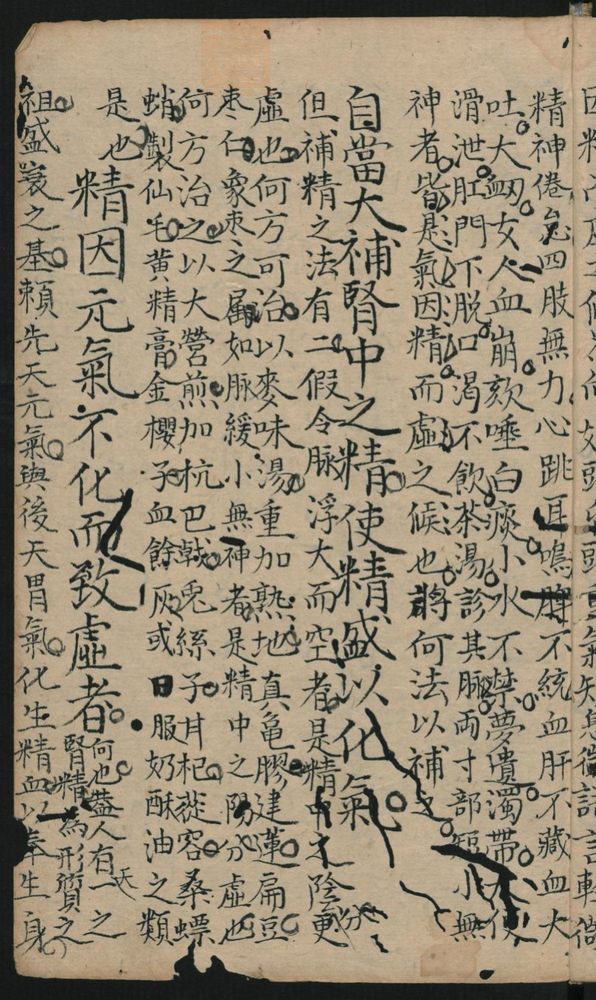 精神倦怠四肢無力心跳耳鳴脾不統血肝不藏血大
吐大衂女人血崩欬唾白痰小水不禁夢遺濁帶大便
滑泄肛門下脫口渴不飲茶湯診其脉兩寸部短小無
神者皆是氣因精而虛之候也將何法以補之
自當大補腎中之精使精盛以化氣
但補精之法有二假令脉浮大而空者是精中之陰分更
虛也何方可治以麥味湯重加熟地真龜膠建蓮扁豆
棗仁象棗之屬如脉緩小無神者是精中之陽分虛也
何方治之以大營煎加杭巴戟兎絲子甘杞蓯容桑螵
蛸製仙毛黄精膏金櫻子血餘灰或日服奶酥油之類
是也
精因元氣不化而致虛者何也蓋人有一之
腎精為形質之
天
祖盛衰之基賴先天元氣與後天胃氣化生精血以奉生身